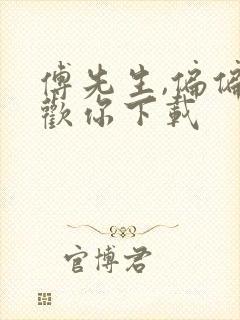 傅先生,偏偏
歡你下載
官博君